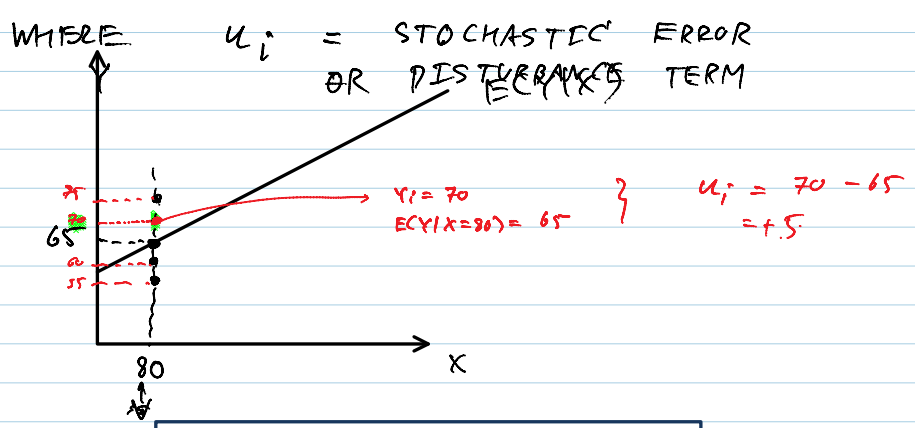 WHERE uᵢ = STOCHASTIC ERROR
OR DISTURBANCE TERM
E(Y/X)
75
70
65
60
55
Yi = 70
E(Y/X=80) = 65
uᵢ = 70 - 65
= +5
80
X